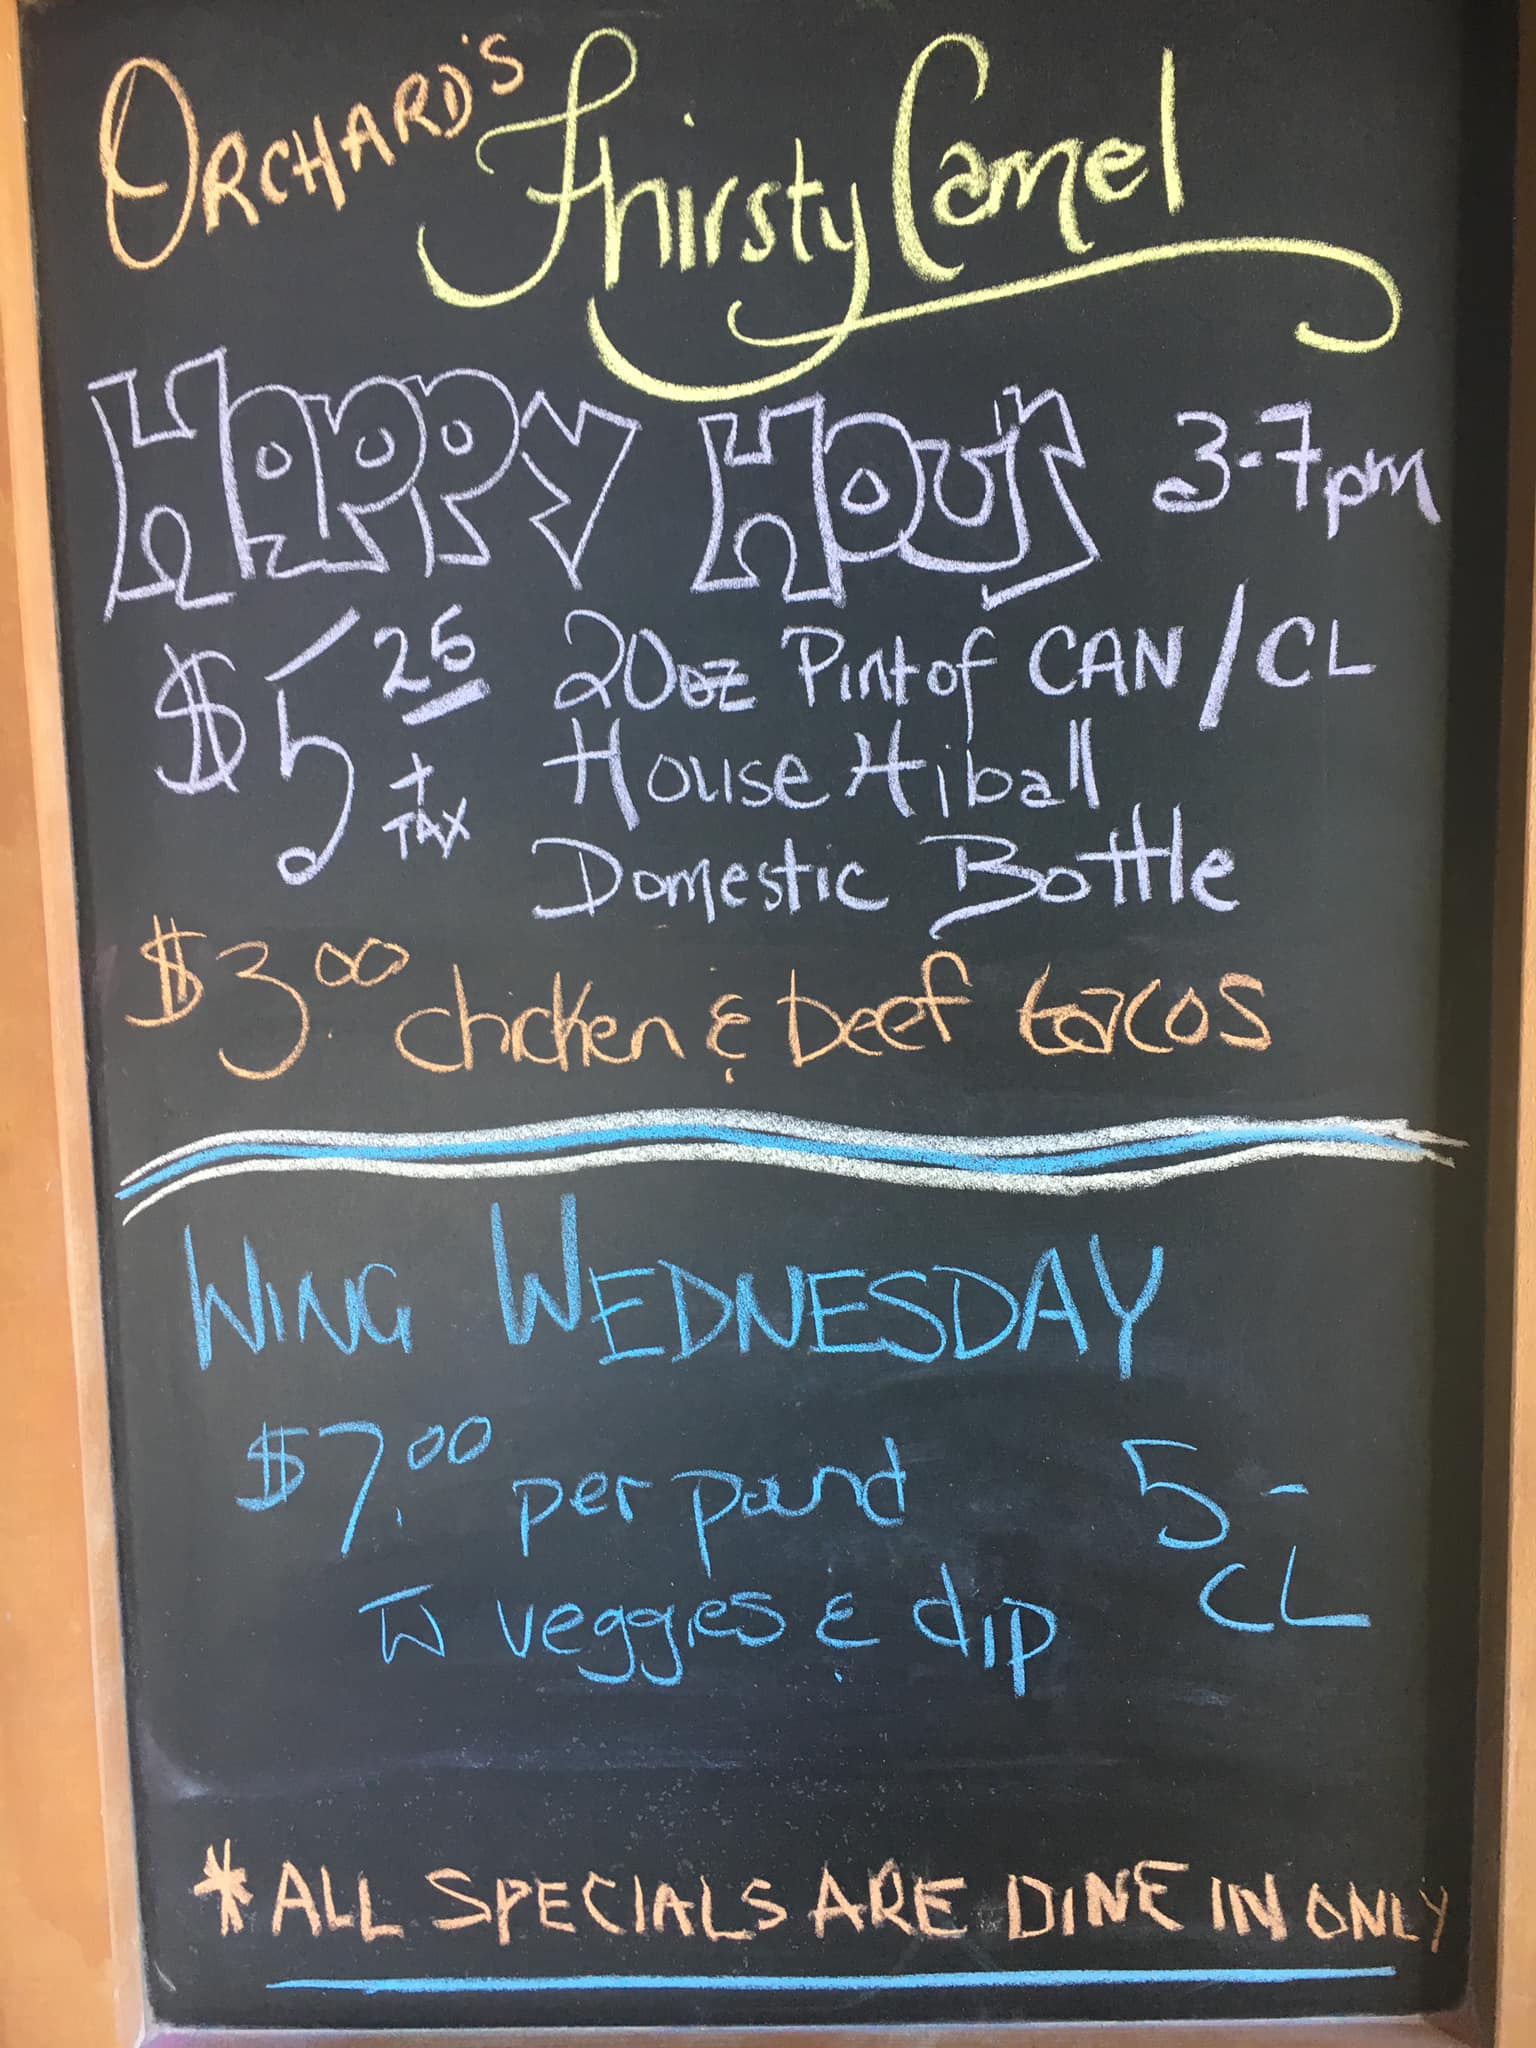 ORCHARD'S Thirsty Camel
HAPPY HOUR 3-7pm
$5 25 + TAX
20oz Pint of CAN/CL
House Hiball
Domestic Bottle
$3.00 chicken & beef tacos
WING WEDNESDAY
$7.00 per pound 5-CL
w veggies & dip
*ALL SPECIALS ARE DINE IN ONLY